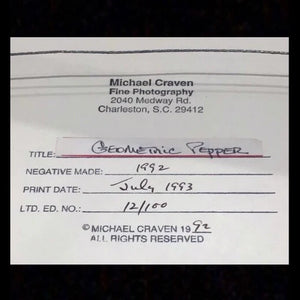 Michael Craven
Fine Photography
2040 Medway Rd.
Charleston, S.C. 29412
TITLE: GEOMETRIC PEPPER
NEGATIVE MADE: 1992
PRINT DATE: July 1993
LTD. ED. NO.: 12/100
© MICHAEL CRAVEN 1992
ALL RIGHTS RESERVED